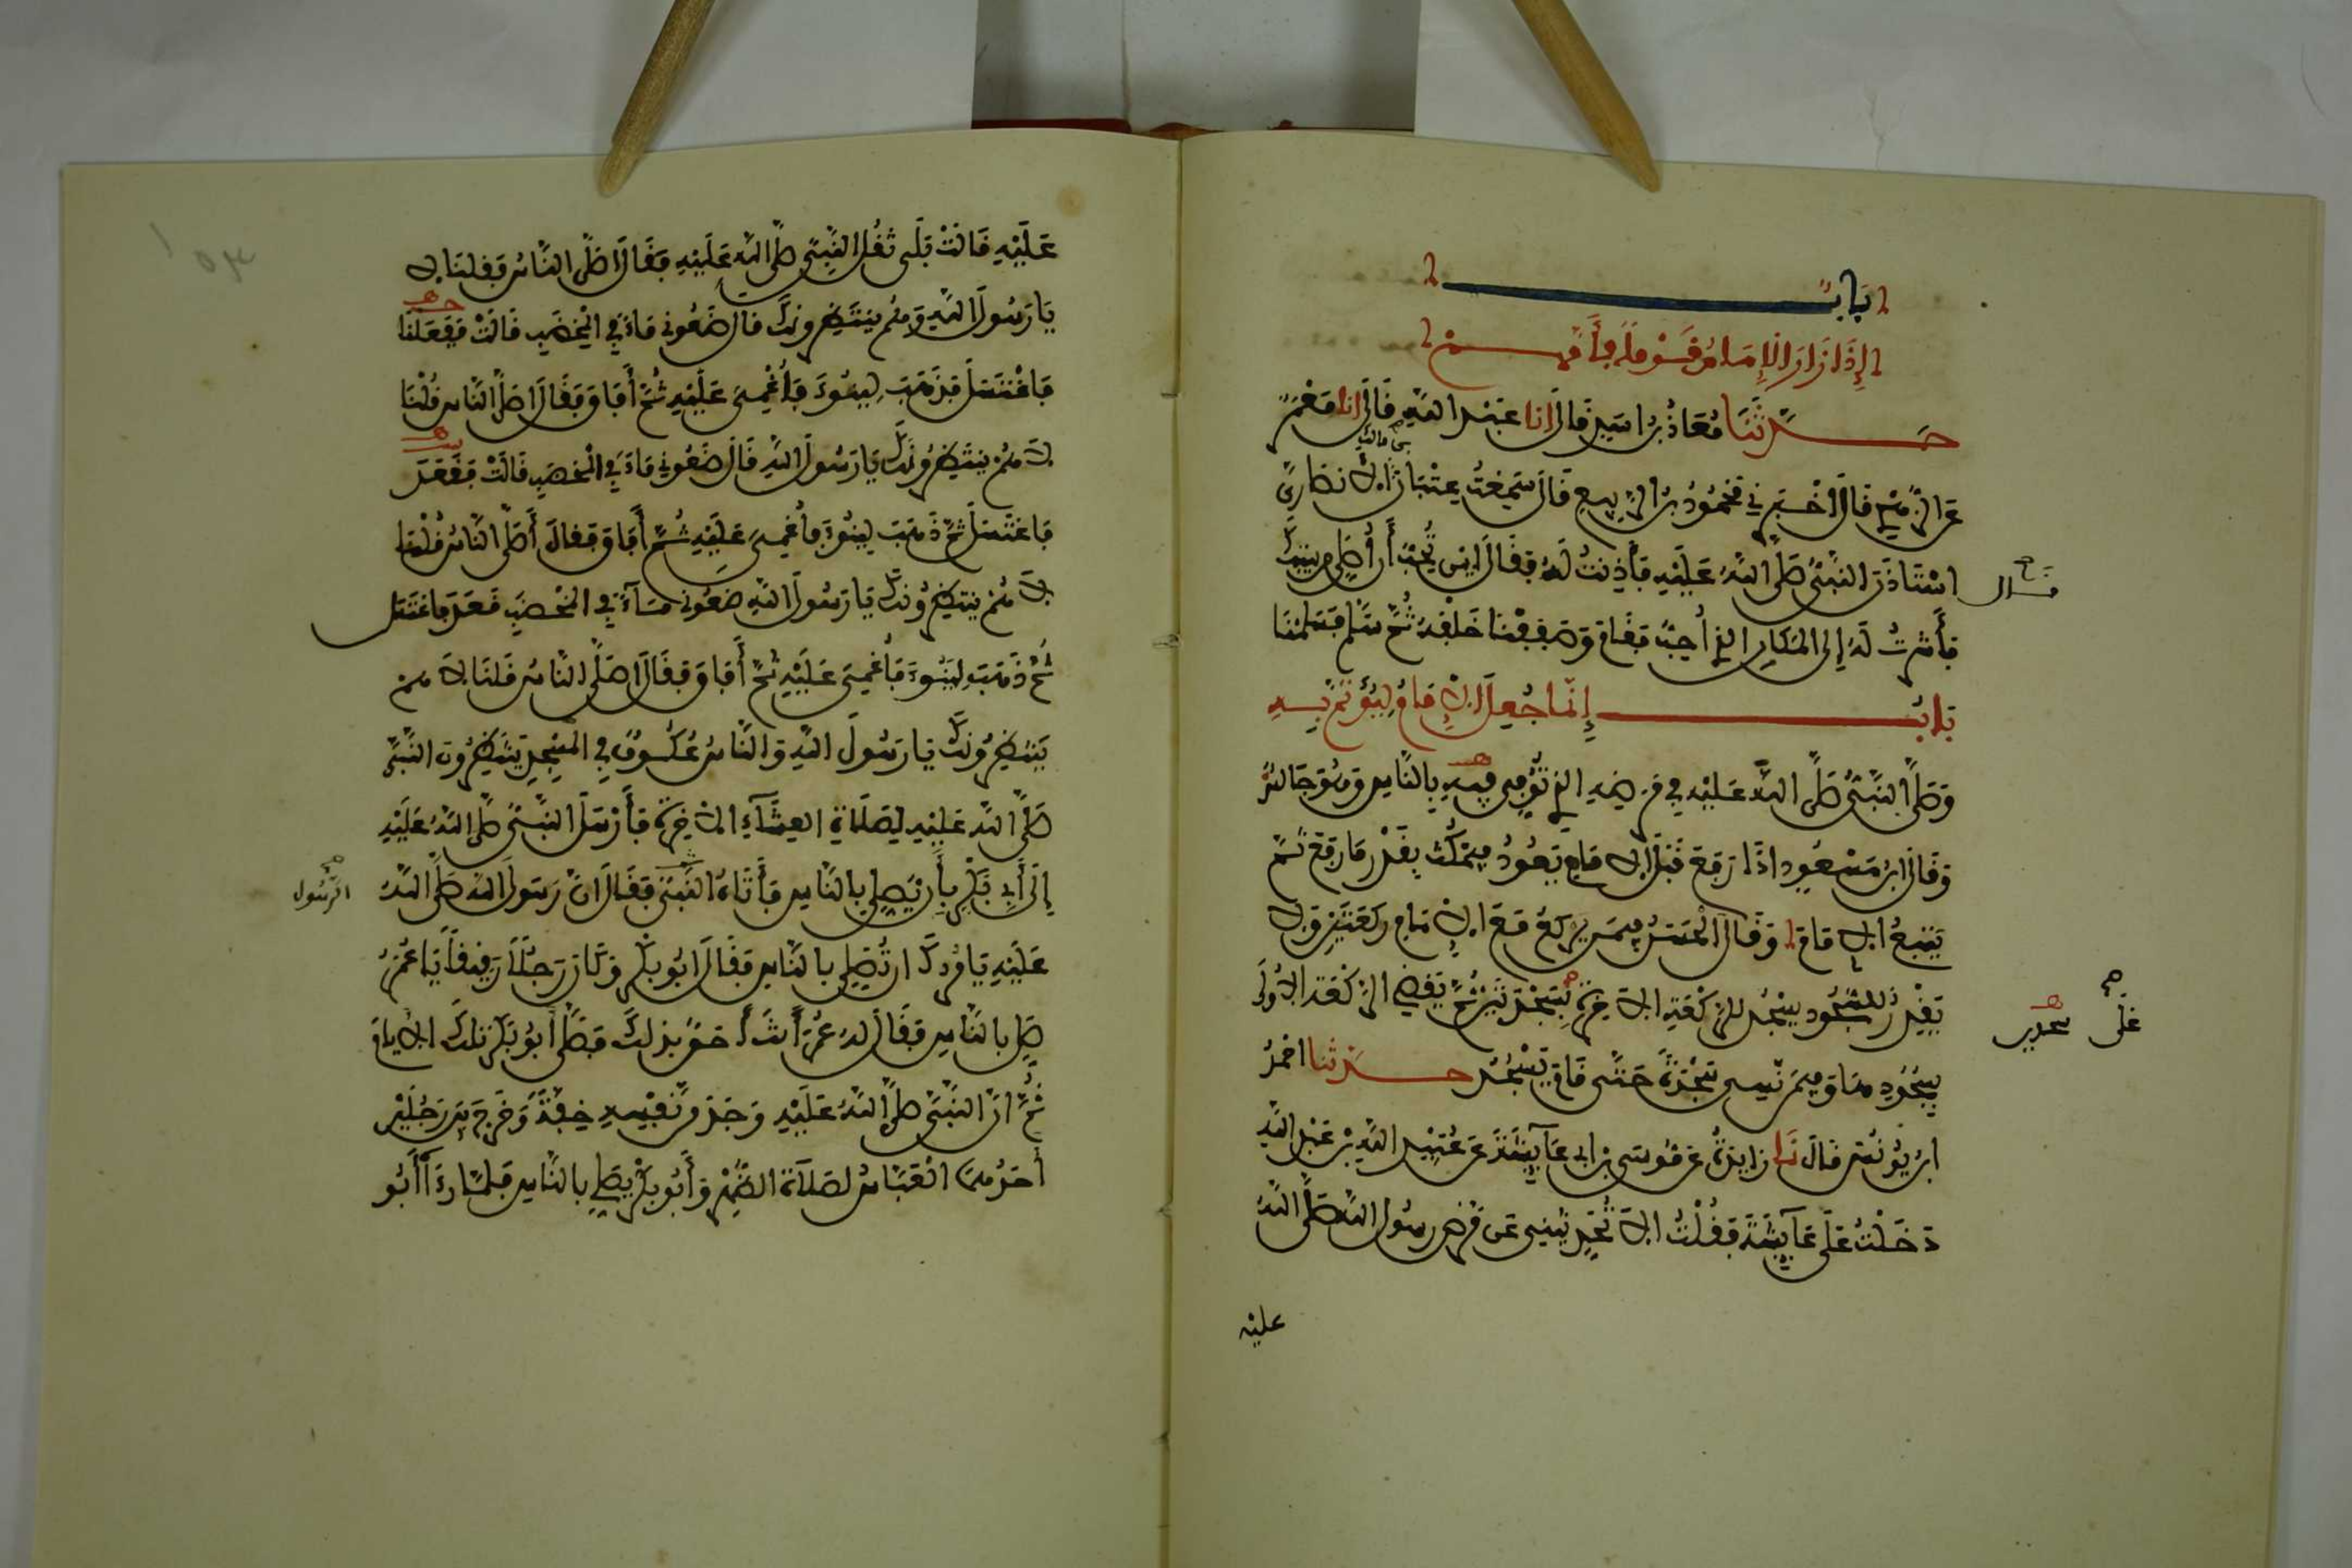 باب
إذا زار الإمام قوما فأمهم
حدثنا معاذ بن اسد قال انا عبد الله قال انا معمر
عن الزهري قال اخبرني محمود بن الربيع قال سمعت عتبان بن مالك الانصاري
قال استاذن النبي صلى الله عليه فأذنت له فقال اين تحب أن أصلي من بيتك
فأشرت له إلى المكان الذي أحب فقام وصففنا خلفه ثم سلم فسلمنا
باب إنما جعل الإمام ليؤتم به
وصلى النبي صلى الله عليه في مرضه الذي توفي فيه بالناس وهو جالس
وقال ابن مسعود اذا رفع قبل الامام يعود فيمكث بقدر ما رفع ثم
يتبع الامام وقال الحسن فيمن يركع مع الإمام ركعتين ولا
يقدر على السجود يسجد للركعة الاخرة سجدتين ثم يقضي الركعة الاولى
بسجودها وفيمن نسي سجدة حتى قام يسجد حدثنا احمد
ابن يونس قال نا زايدة عن موسى بن ابي عآيشة عن عبيد الله بن عبد الله
دخلت على عآيشة فقلت الا تحدثيني عن مرض رسول الله صلى الله
عليه
عليه قالت بلى ثقل النبي صلى الله عليه فقال اصلى الناس فقلنا لا
يا رسول الله وهم ينتظرونك قال ضعوني مآء في المخضب قالت ففعلنا
فاغتسل فذهب لينوء فأغمي عليه ثم أفاق فقال اصلى الناس قلنا
لا هم ينتظرونك يا رسول الله قال ضعوني مآء في المخضب قالت فقعد
فاغتسل ثم ذهب لينوء فأغمي عليه ثم أفاق فقال أصلى الناس قلنا
لا هم ينتظرونك يا رسول الله ضعوني مآء في المخضب فقعد فاغتسل
ثم ذهب لينوء فأغمي عليه ثم أفاق فقال اصلى الناس قلنا لا هم
ينتظرونك يا رسول الله والناس عكوف في المسجد ينتظرون النبي
صلى الله عليه لصلاة العشآء الاخرة فأرسل النبي صلى الله عليه
إلى أبي بكر بأن يصلي بالناس فأتاه فقال ان رسول الله صلى الله
الرسول
عليه يامرك ان تصلي بالناس فقال ابو بكر وكان رجلا رقيقا يا عمر
صل بالناس فقال له عمر أنت أحق بذلك فصلى أبو بكر تلك الايام
ثم ان النبي صلى الله عليه وجد من نفسه خفة وخرج بين رجلين
أحدهما العباس لصلاة الظهر وأبو بكر يصلي بالناس فلما رءاه أبو